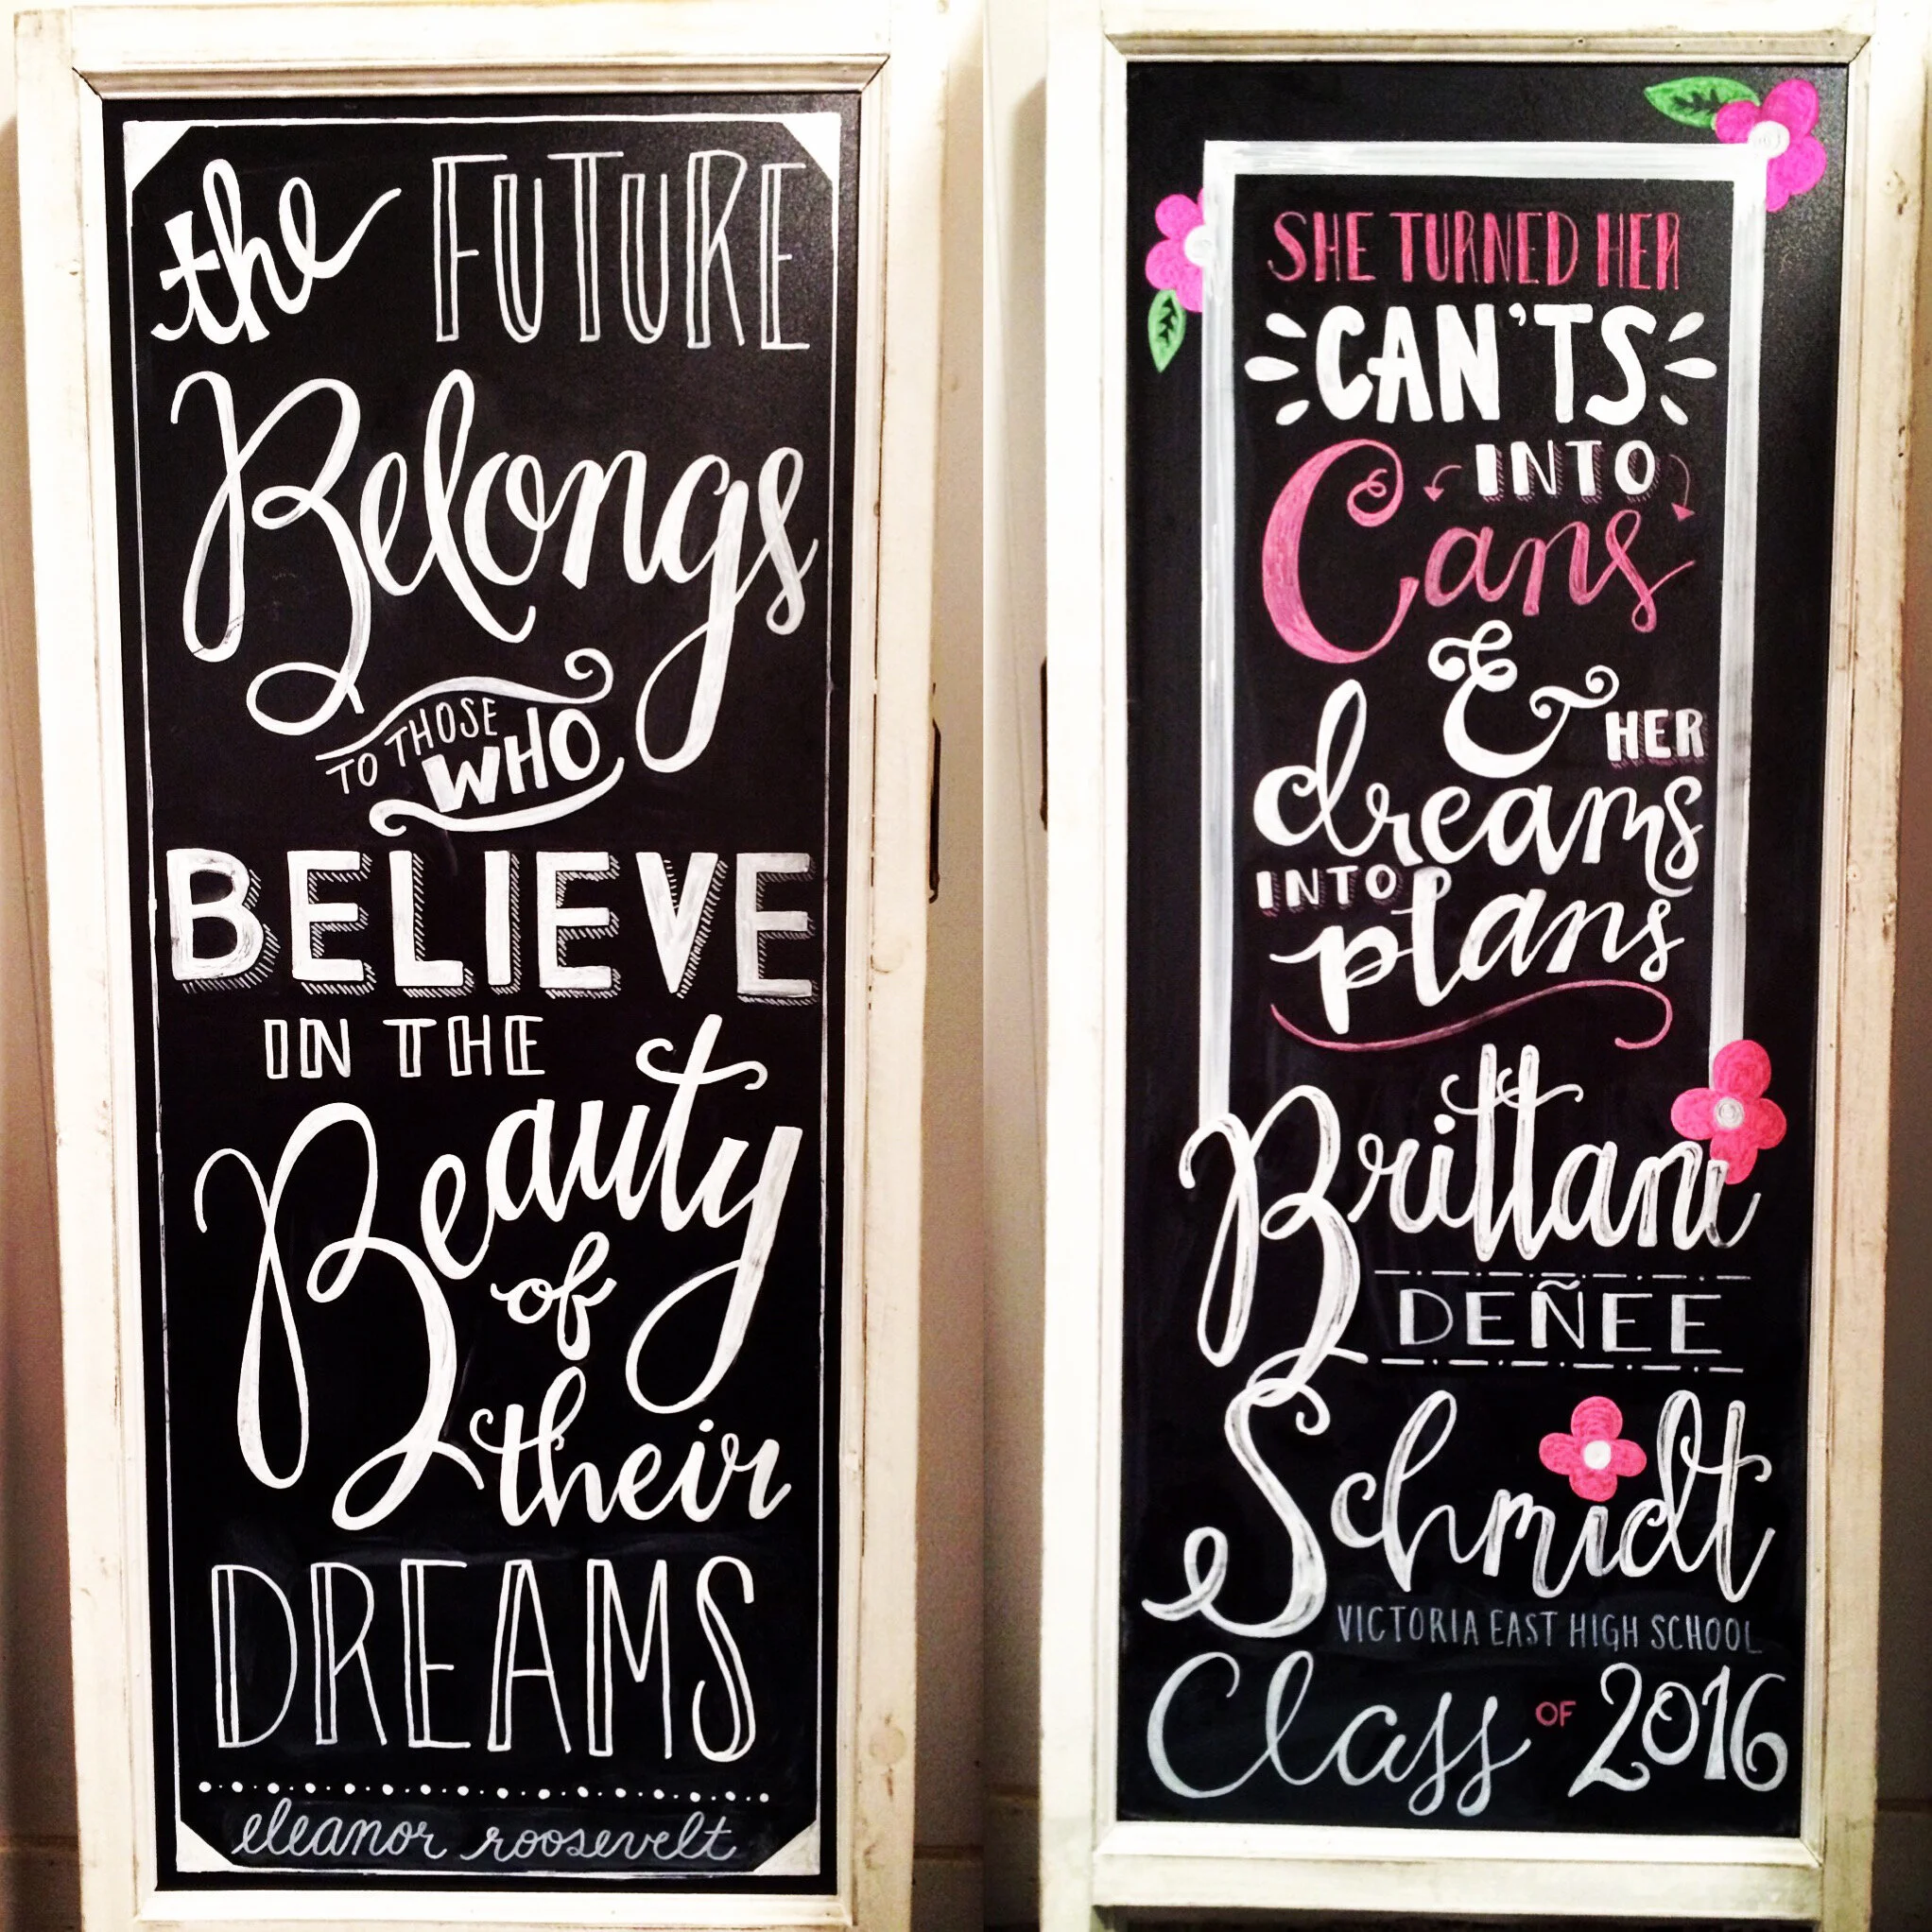 the FUTURE
Belongs
TO THOSE
WHO
BELIEVE
IN THE
Beauty
of
their
DREAMS
eleanor roosevelt
SHE TURNED HER
CAN'TS
INTO
Cans
& HER
dreams
INTO
plans
Brittani
DEÑEE
Schmidt
VICTORIA EAST HIGH SCHOOL
Class OF 2016